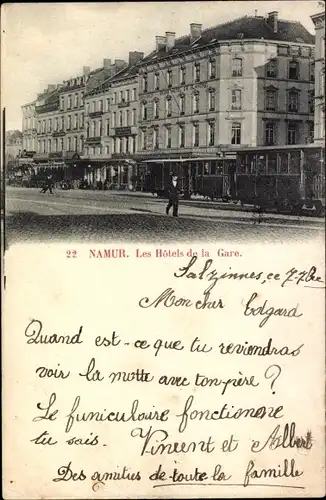 22 NAMUR. Les Hôtels de la Gare.
Salzinnes, ce 7-7bre
Mon cher Edgard
Quand est-ce que tu reviendras
voir la motte avec ton père ?
Le funiculaire fonctionne
tu sais. Vincent et Albert
Des amitiés de toute la famille